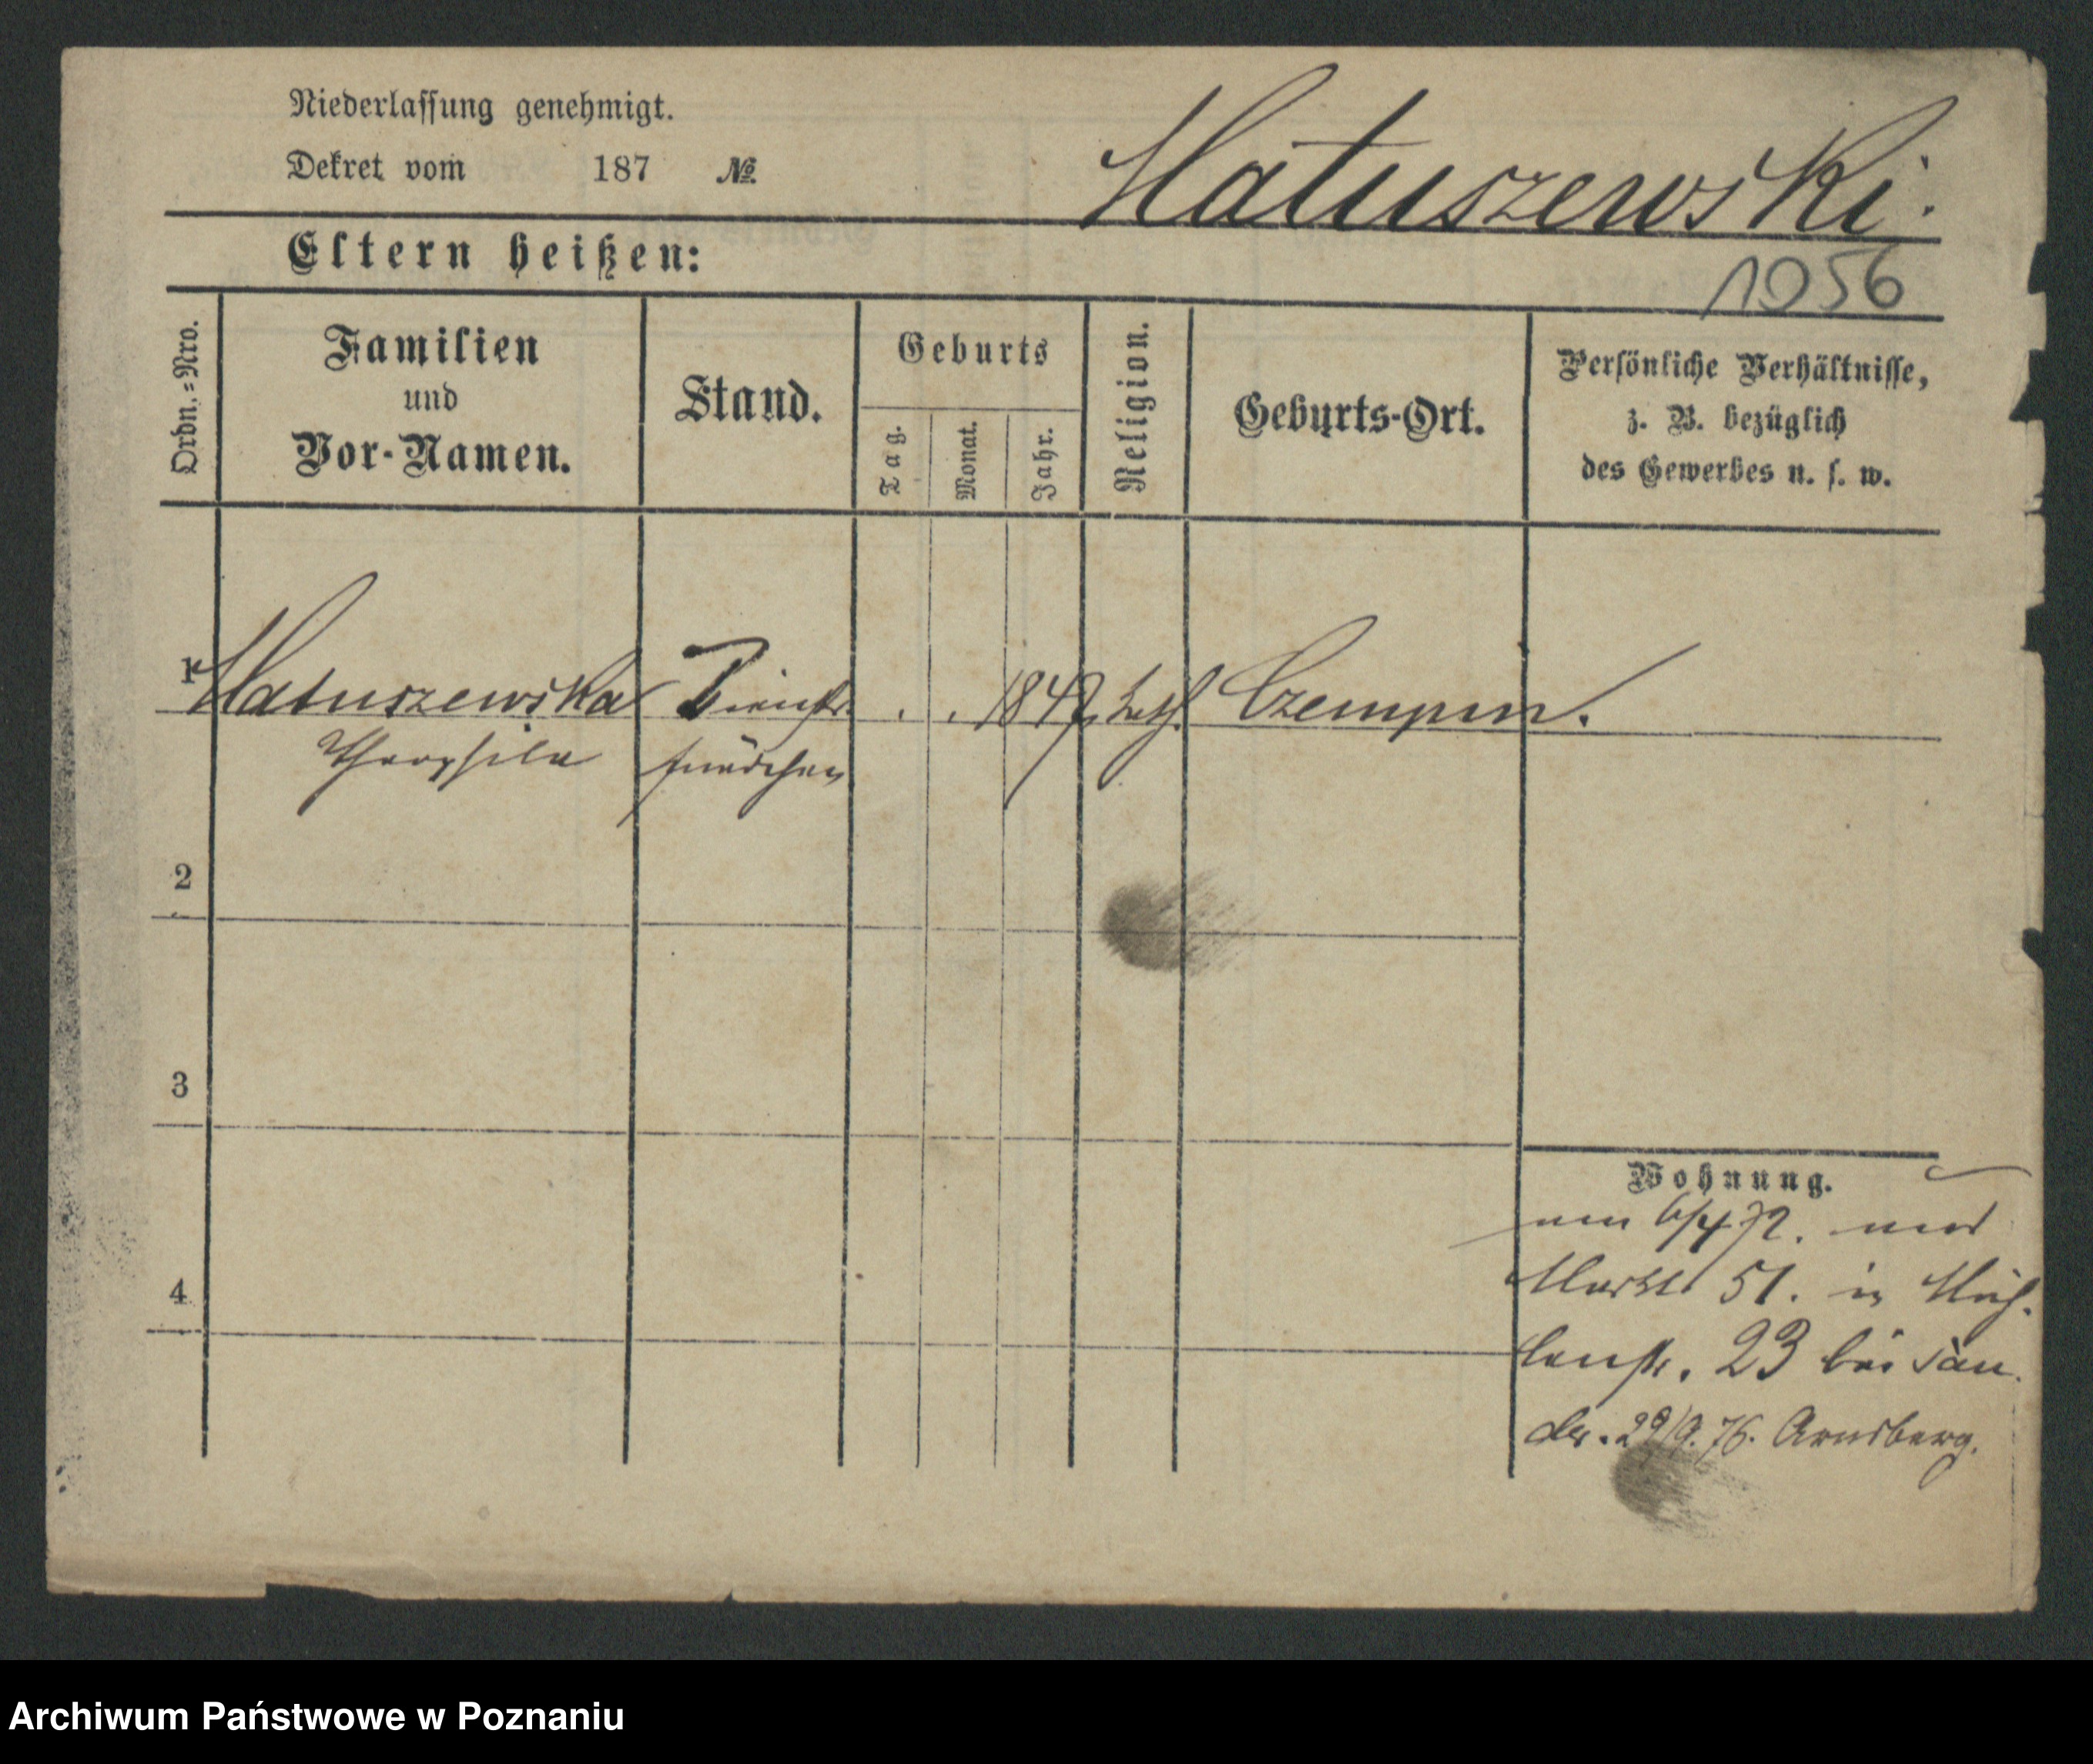 Niederlassung genehmigt.
Dekret vom 187 №
Matuszewski.
Eltern heißen:
1056
Ordn.=Nro.
Familien
und
Vor-Namen.
Stand.
Geburts
Tag.
Monat.
Jahr.
Religion.
Geburts-Ort.
Persönliche Verhältnisse,
z. B. bezüglich
des Gewerbes u. s. w.
1 Matuszewska Dienst 1849 kath. Czempin.
Theophila mädchen
2
3
4
Wohnung.
6/4 72.
Markt 51. in Müh-
lenstr. 23 bei San
der. 29/9. 76. Arnsberg.
Archiwum Państwowe w Poznaniu